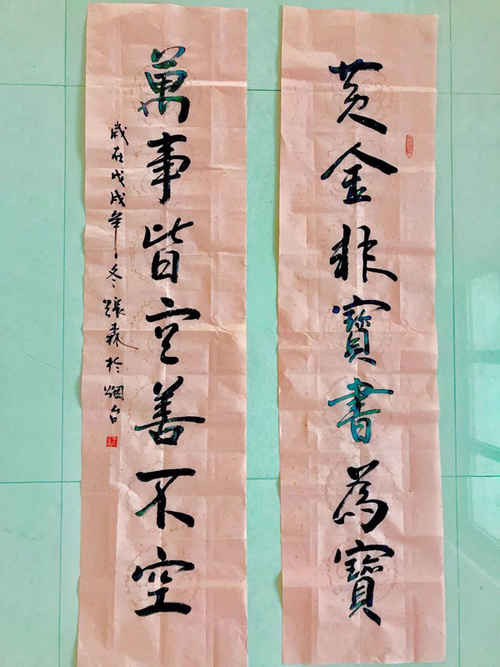 黄金非寶書為寶
萬事皆空善不空
歲在戊戌年冬張森於烟台